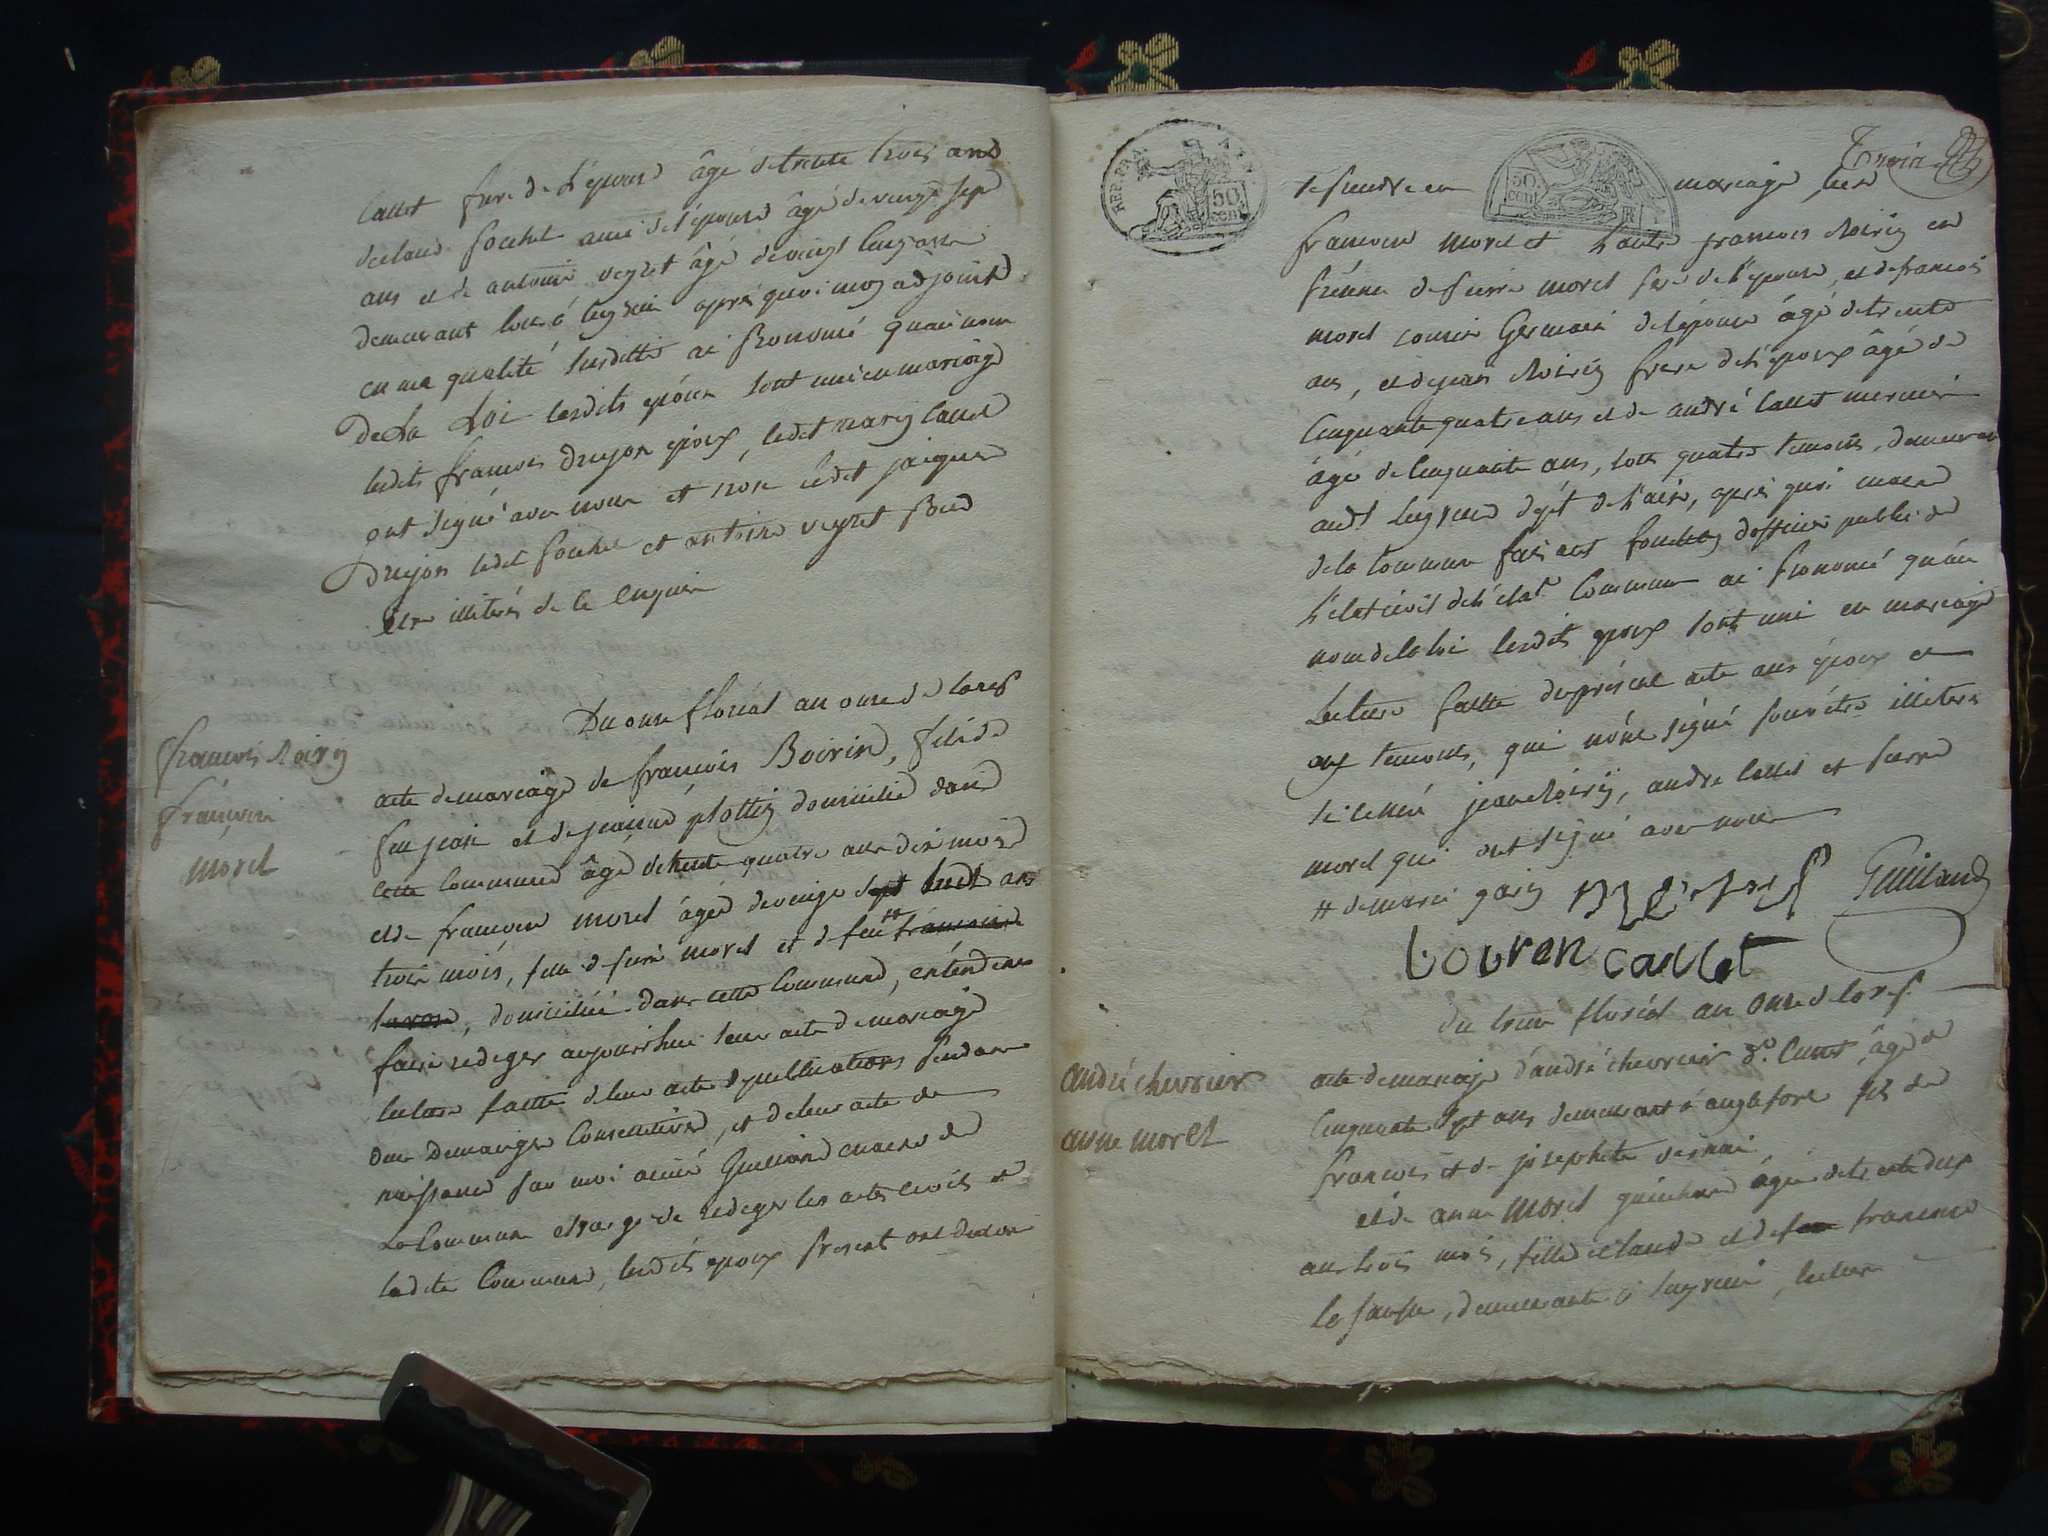 Callet frere de l'epouse âgé de trente trois ans
declaud fochet ami de l'epouse âgé de vingt sept
ans et de antoine veyret âgé de vingt cinq ans
demeurant tous à apres quoi moy adjoint
en ma qualité susditte ai prononcé qu'au nom
De La Loi lesdits epoux sont unis en mariage
ledit francois Drujon epoux, ledit Callet
ont signé avec nous et non ledit jacque
Drujon ledit fochet et antoine veyret pour
être illiterés de ce enquis
Du onze floréal an onze de la rep
francois Boirin
francoise
morel
acte de mariage de francois Boirin, fils de
feu jean et de jeanne plottin domicilié dans
cette commune âgé de trente quatre ans dix mois
et de francoise morel âgée de vingt sept huit ans
trois mois, fille de pierre morel et de feu # francoise
, domiciliée dans cette commune, entendant
faire rediger aujourdhui leur acte de mariage
lecture faitte de leur acte de publications pendant
deux Dimanches consecutives, et de leur acte de
naissance par moi aimé Guilland maire de
La Commune chargé de rediger les actes civils de
ladite Commune, lesdits epoux presents ont declaré
REP. FRA.
50 cen
50. cen R
Troin
se prendre en mariage l'un
francoise morel et l'autre francois Boirin en
presence de pierre morel pere de l'epouse, et de francois
morel cousin Germain de l'epouse âgé de trente
ans, et de jean Boirin frere de l'epoux âgé de
cinquante quatre ans et de andré Callet
âgé de cinquante ans, tous quatre temoins, demeurant
audt dept de l'ain, après quoi maire
de la commune faisant fonction d'officier public de
l'etat civil de l'état Commune ai prononcé qu'au
nom de la loi lesdits epoux sont unis en mariage
Lecture faitte du présent acte aux époux et
aux temoins, qui n'ont signé pour être illiterés
si ce n'est jean Boirin, andre Callet et pierre
morel qui ont signé avec nous
# de marie goin morel Guilland
bovren callet
du treize floréal an onze de la rep.
andré chevrier
anne morel
acte de mariage d'andré chevrier âgé de
cinquante sept ans demeurant à anglefort fils de
francois et de josephete
et de anne morel âgée de trente deux
ans trois mois, fille de claude et de feu francoise
, demeurante à , lecture